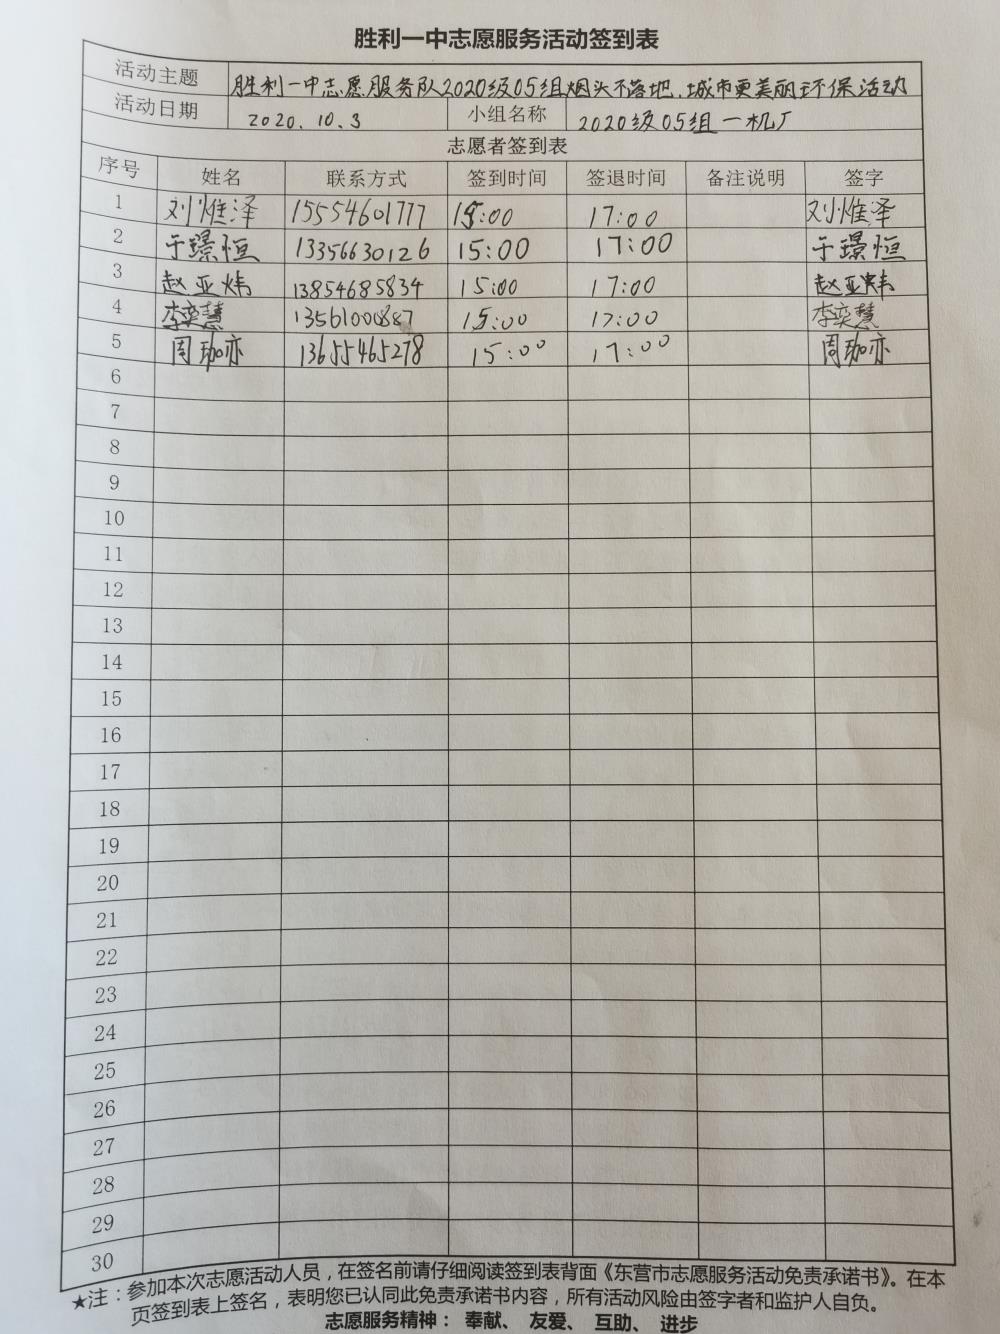 胜利一中志愿服务活动签到表
活动主题 胜利一中志愿服务队2020级05组烟头不落地，城市更美丽环保活动
活动日期 2020.10.3 小组名称 2020级05组一机厂
志愿者签到表
序号 姓名 联系方式 签到时间 签退时间 备注说明 签字
1 刘惟泽 15554601777 15:00 17:00 刘惟泽
2 于璟恒 13356630126 15:00 17:00 于璟恒
3 赵亚炜 13854685834 15:00 17:00 赵亚炜
4 李奕慧 13561000887 15:00 17:00 李奕慧
5 周珈亦 13655465278 15:00 17:00 周珈亦
6
7
8
9
10
11
12
13
14
15
16
17
18
19
20
21
22
23
24
25
26
27
28
29
30
★注：参加本次志愿活动人员，在签名前请仔细阅读签到表背面《东营市志愿服务活动免责承诺书》。在本
页签到表上签名，表明您已认同此免责承诺书内容，所有活动风险由签字者和监护人自负。
志愿服务精神： 奉献、 友爱、 互助、 进步